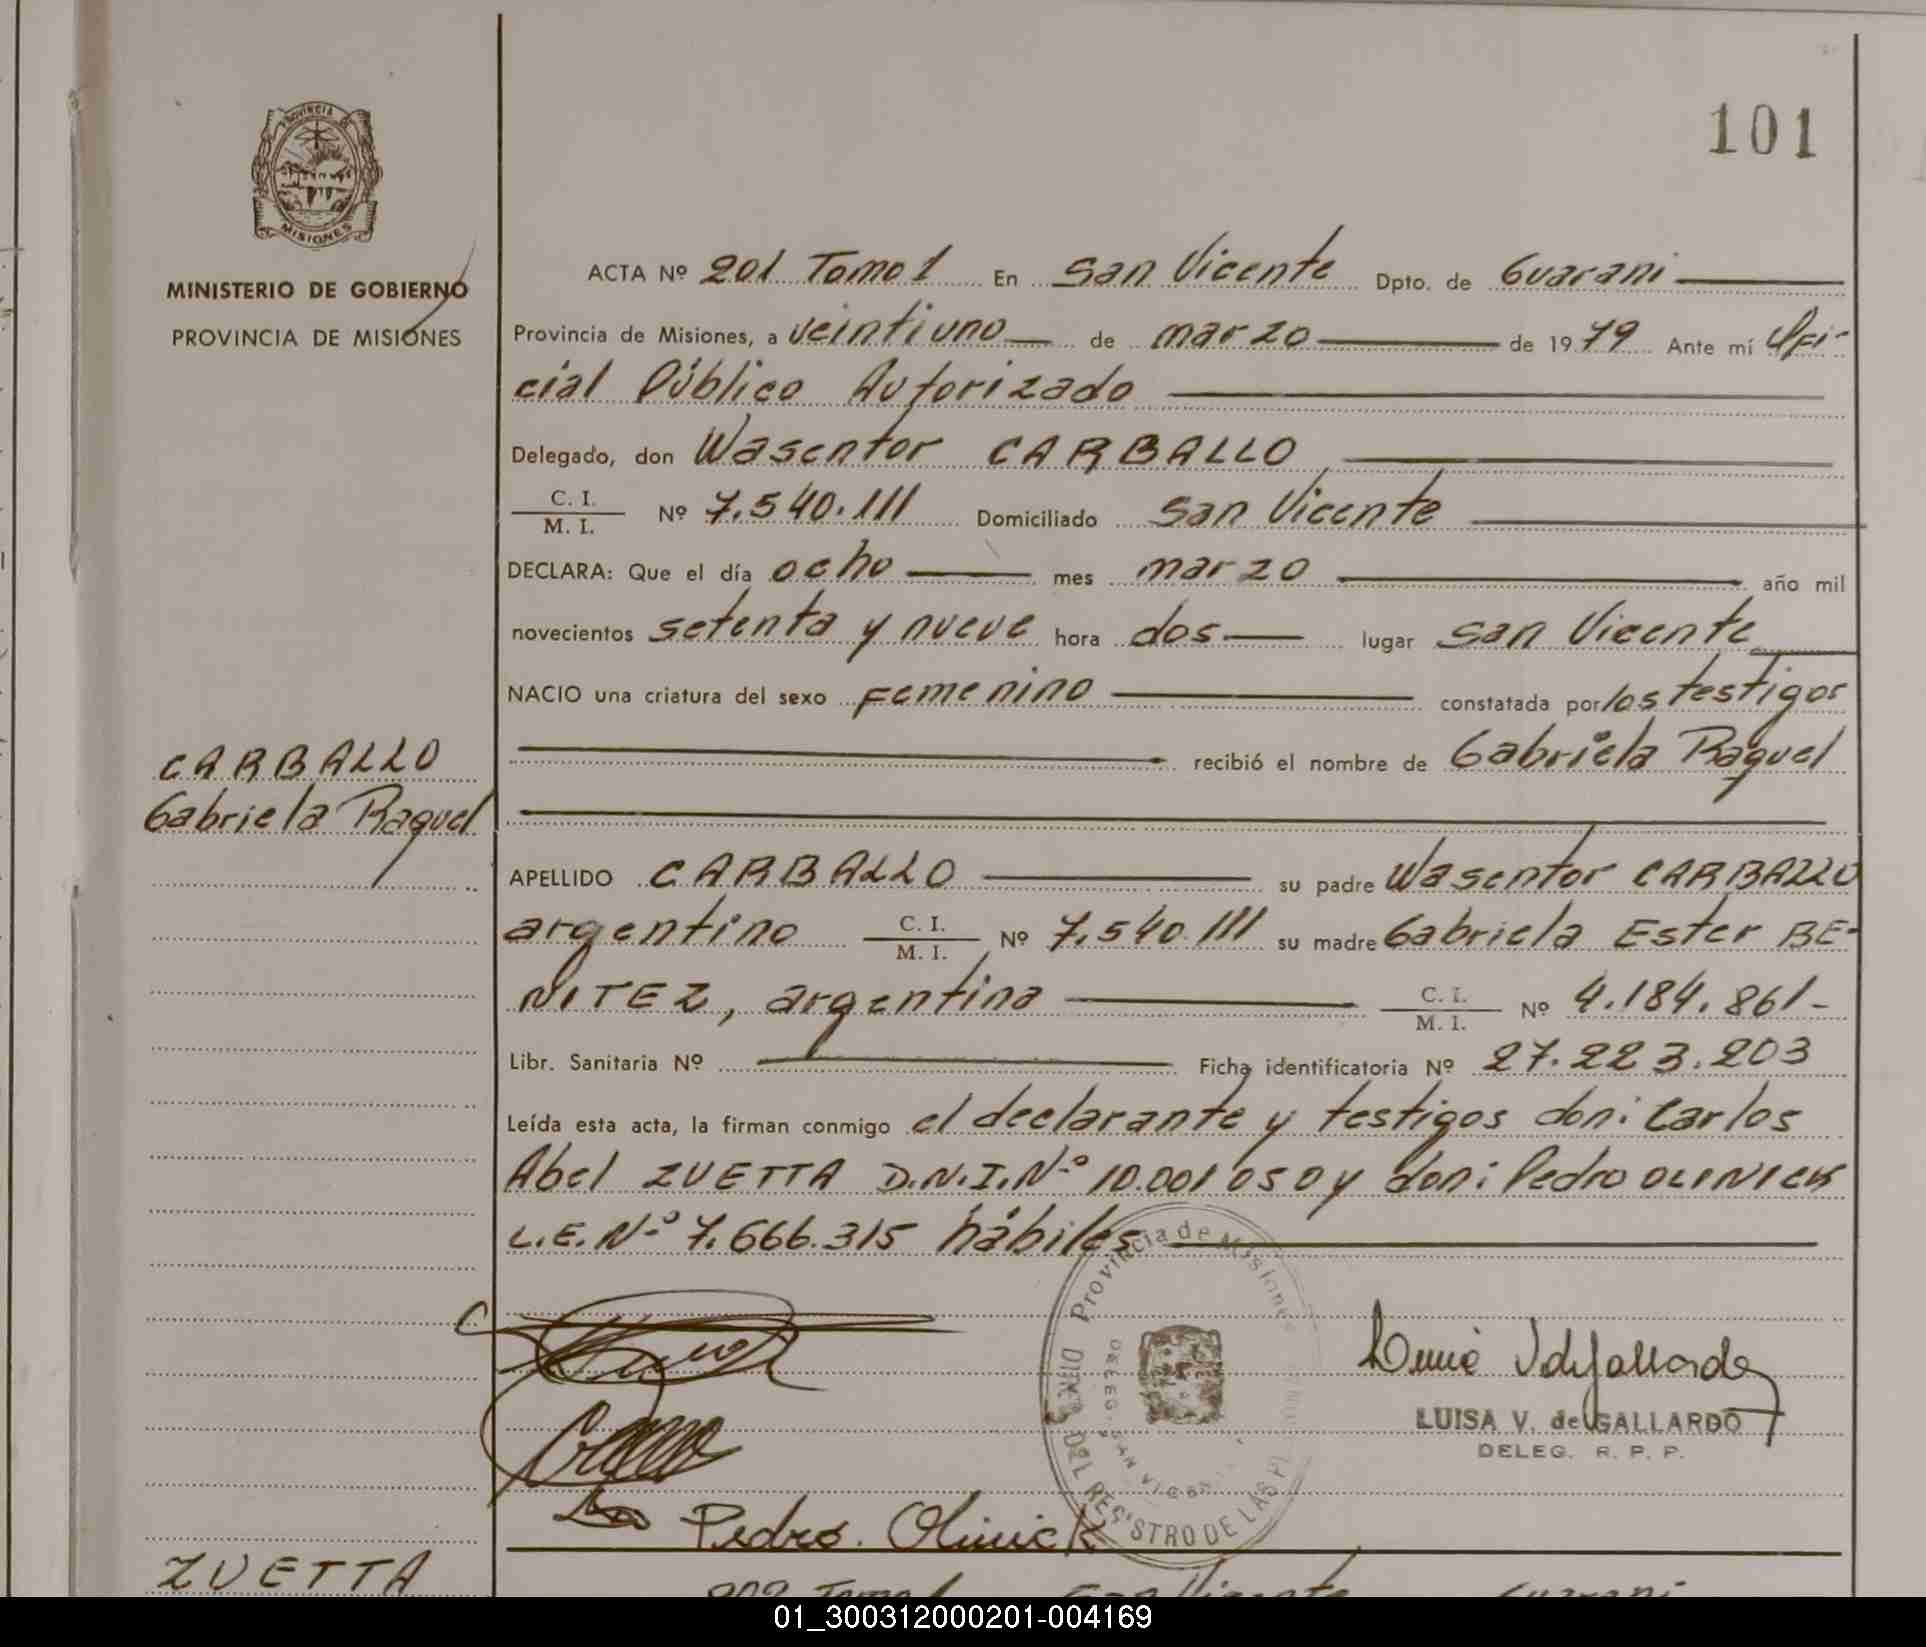 101
PROVINCIA DE
MISIONES
MINISTERIO DE GOBIERNO
PROVINCIA DE MISIONES
ACTA Nº 201 Tomo 1 En San Vicente Dpto. de Guarani
Provincia de Misiones, a veintiuno de marzo de 1979 Ante mí Ofi-
cial Público Autorizado
Delegado, don Wasentor CARBALLO
C. I.
M. I. Nº 7.540.111 Domiciliado San Vicente
DECLARA: Que el día ocho mes marzo año mil
novecientos setenta y nueve hora dos lugar San Vicente
NACIO una criatura del sexo Femenino constatada por los testigos
recibió el nombre de Gabriela Raquel
CARBALLO
Gabriela Raquel
APELLIDO CARBALLO su padre Wasentor CARBALLO
argentino C. I.
M. I. Nº 7.540.111 su madre Gabriela Ester BE-
NITEZ, argentina C. I.
M. I. Nº 4.184.861-
Libr. Sanitaria Nº Ficha identificatoria Nº 27.223.203
Leída esta acta, la firman conmigo el declarante y testigos don: Carlos
Abel ZUETTA D.N.I.Nº 10.001050 y don: Pedro OLINICK
L.E.Nº 7.666.315 hábiles
Provincia de Misiones
DEL REGISTRO DE LAS
LUISA V. de GALLARDO
DELEG. R. P. P.
Pedro. Olinick
ZUETTA
202 Tomo 1 San Vicente Guarani
01_300312000201-004169